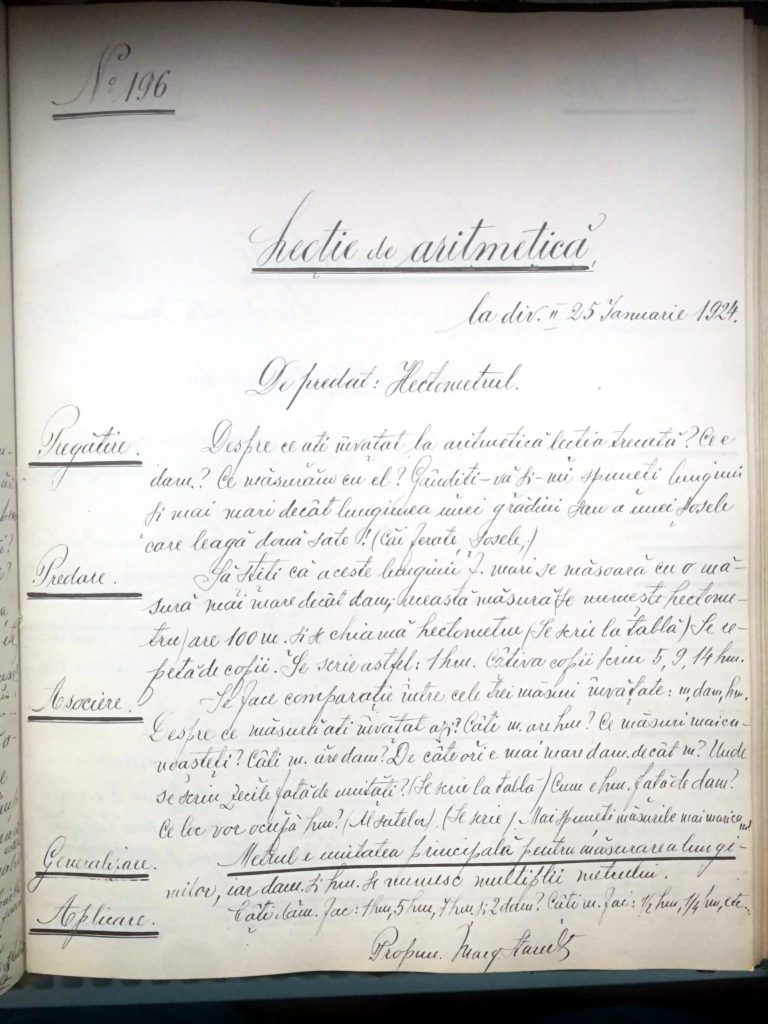 No 196
Lecție de aritmetică,
la div. II 25 Ianuarie 1924.
De predat: Hectometrul.
Pregătire. Despre ce ati învatat la aritmetică lectia trecută? Ce e
dam.? Ce măsurăm cu el? Gânditi-vă și-mi spuneti lungimi
și mai mari decât lungimea unei grădini sau a unei șosele
care leagă două sate! (Căi ferate, șosele,)
Predare. Să stiti că aceste lungimi f. mari se măsoară cu o mă-
sură mai mare decât dam; această măsură (se numește hectome-
tru) are 100 m. și se chiamă hectometru (Se scrie la tablă) Se re-
petă de copii. Se scrie astfel: 1 hm. Câtiva copii scriu 5, 9, 14 hm.
Asociere. Se face comparație între cele trei măsuri învățate: m, dam, hm.
Despre ce măsură ati învătat azi? Câti m. are hm? Ce măsuri mai cu-
noașteți? Câti m. are dam? De câte ori e mai mare dam. decât m? Unde
se scriu zecile fată de unităti? (Se scrie la tablă) Cum e hm. fată de dam?
Ce loc vor ocupă hm? (Al sutelor). (Se scrie) Mai spuneti măsurile mai mari ca m!
Generalizare. Metrul e unitatea principală pentru măsurarea lungi-
milor, iar dam. și hm. se numesc multiplii metrului.
Aplicare. Câti dam. fac: 1 hm, 5 hm, 7 hm și 2 dam? Câti m. fac: 1/2 hm, 1/4 hm, etc.
Propun. Marg